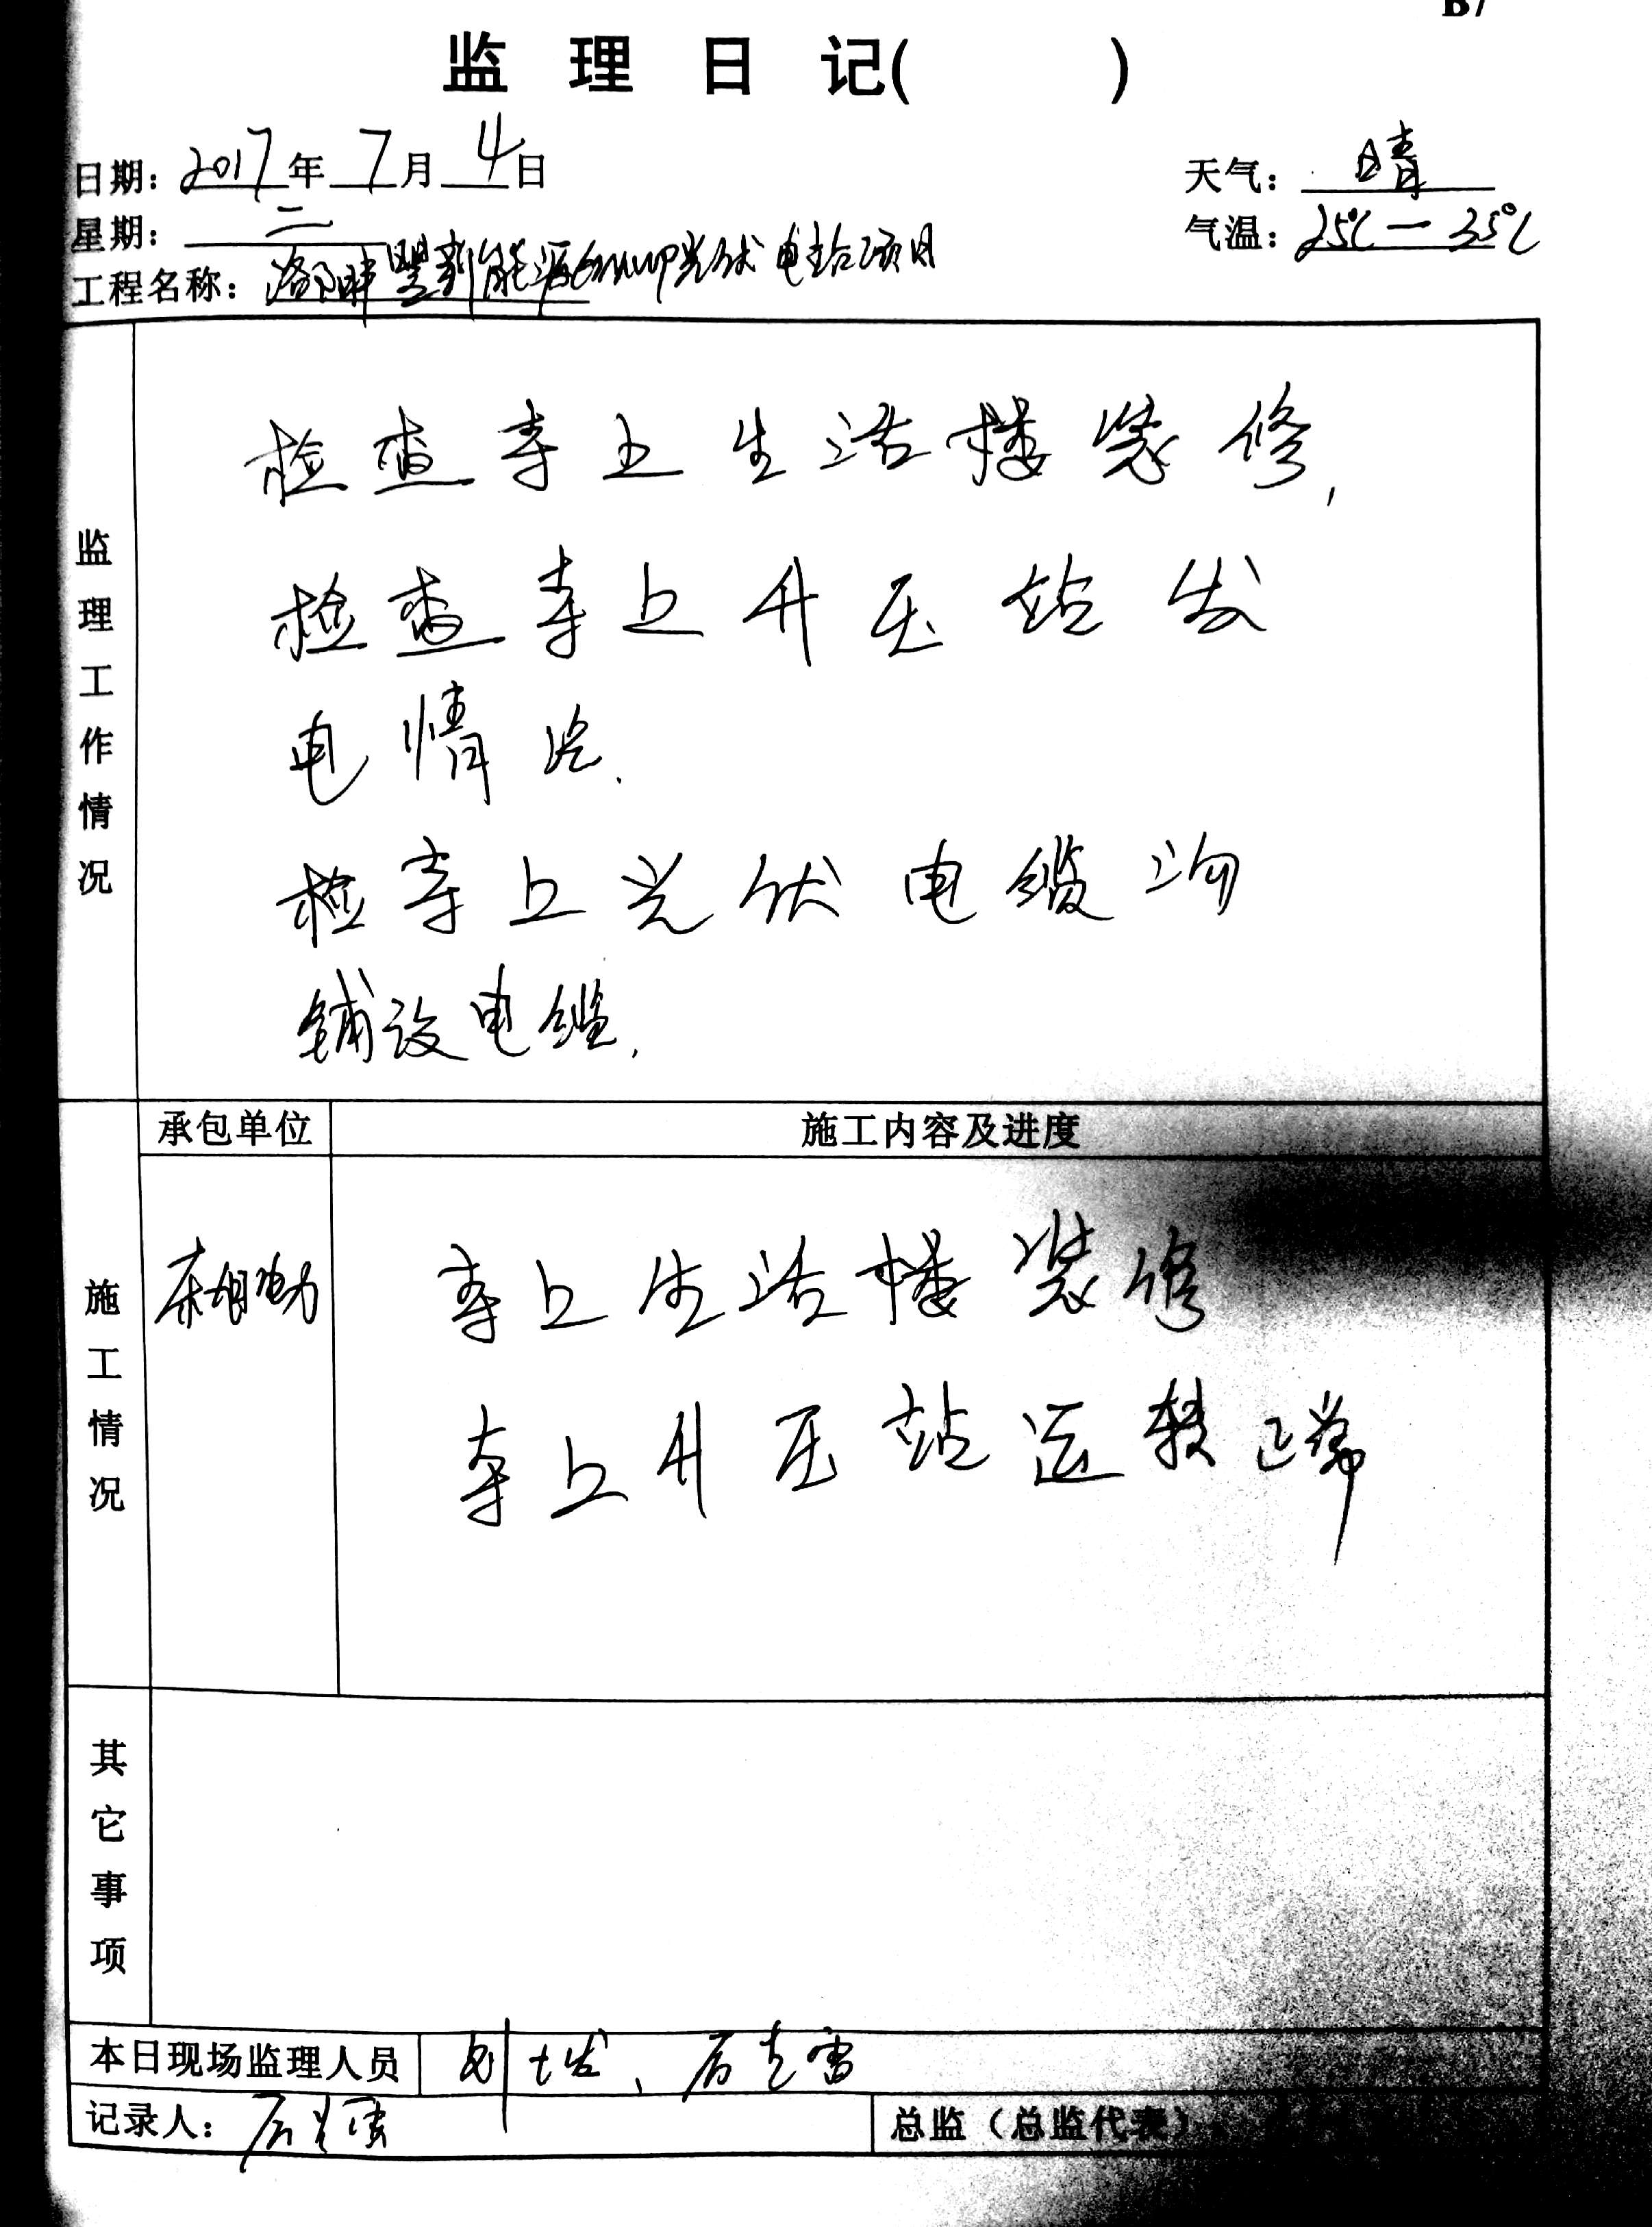 B7
监 理 日 记( )
日期: 2017年 7月 4日
天气: 晴
星期: 二
气温: 25℃—35℃
工程名称: 洛阳 新能源 光伏电站项目
监理工作情况
检查寺上生活楼装修,
检查寺上升压站发
电情况.
检寺上光伏电缆沟
铺设电缆.
承包单位
施工内容及进度
施工情况
东旭电力
寺上生活楼装修
寺上升压站运转正常
其它事项
本日现场监理人员
刘 、
记录人:
总监(总监代表)